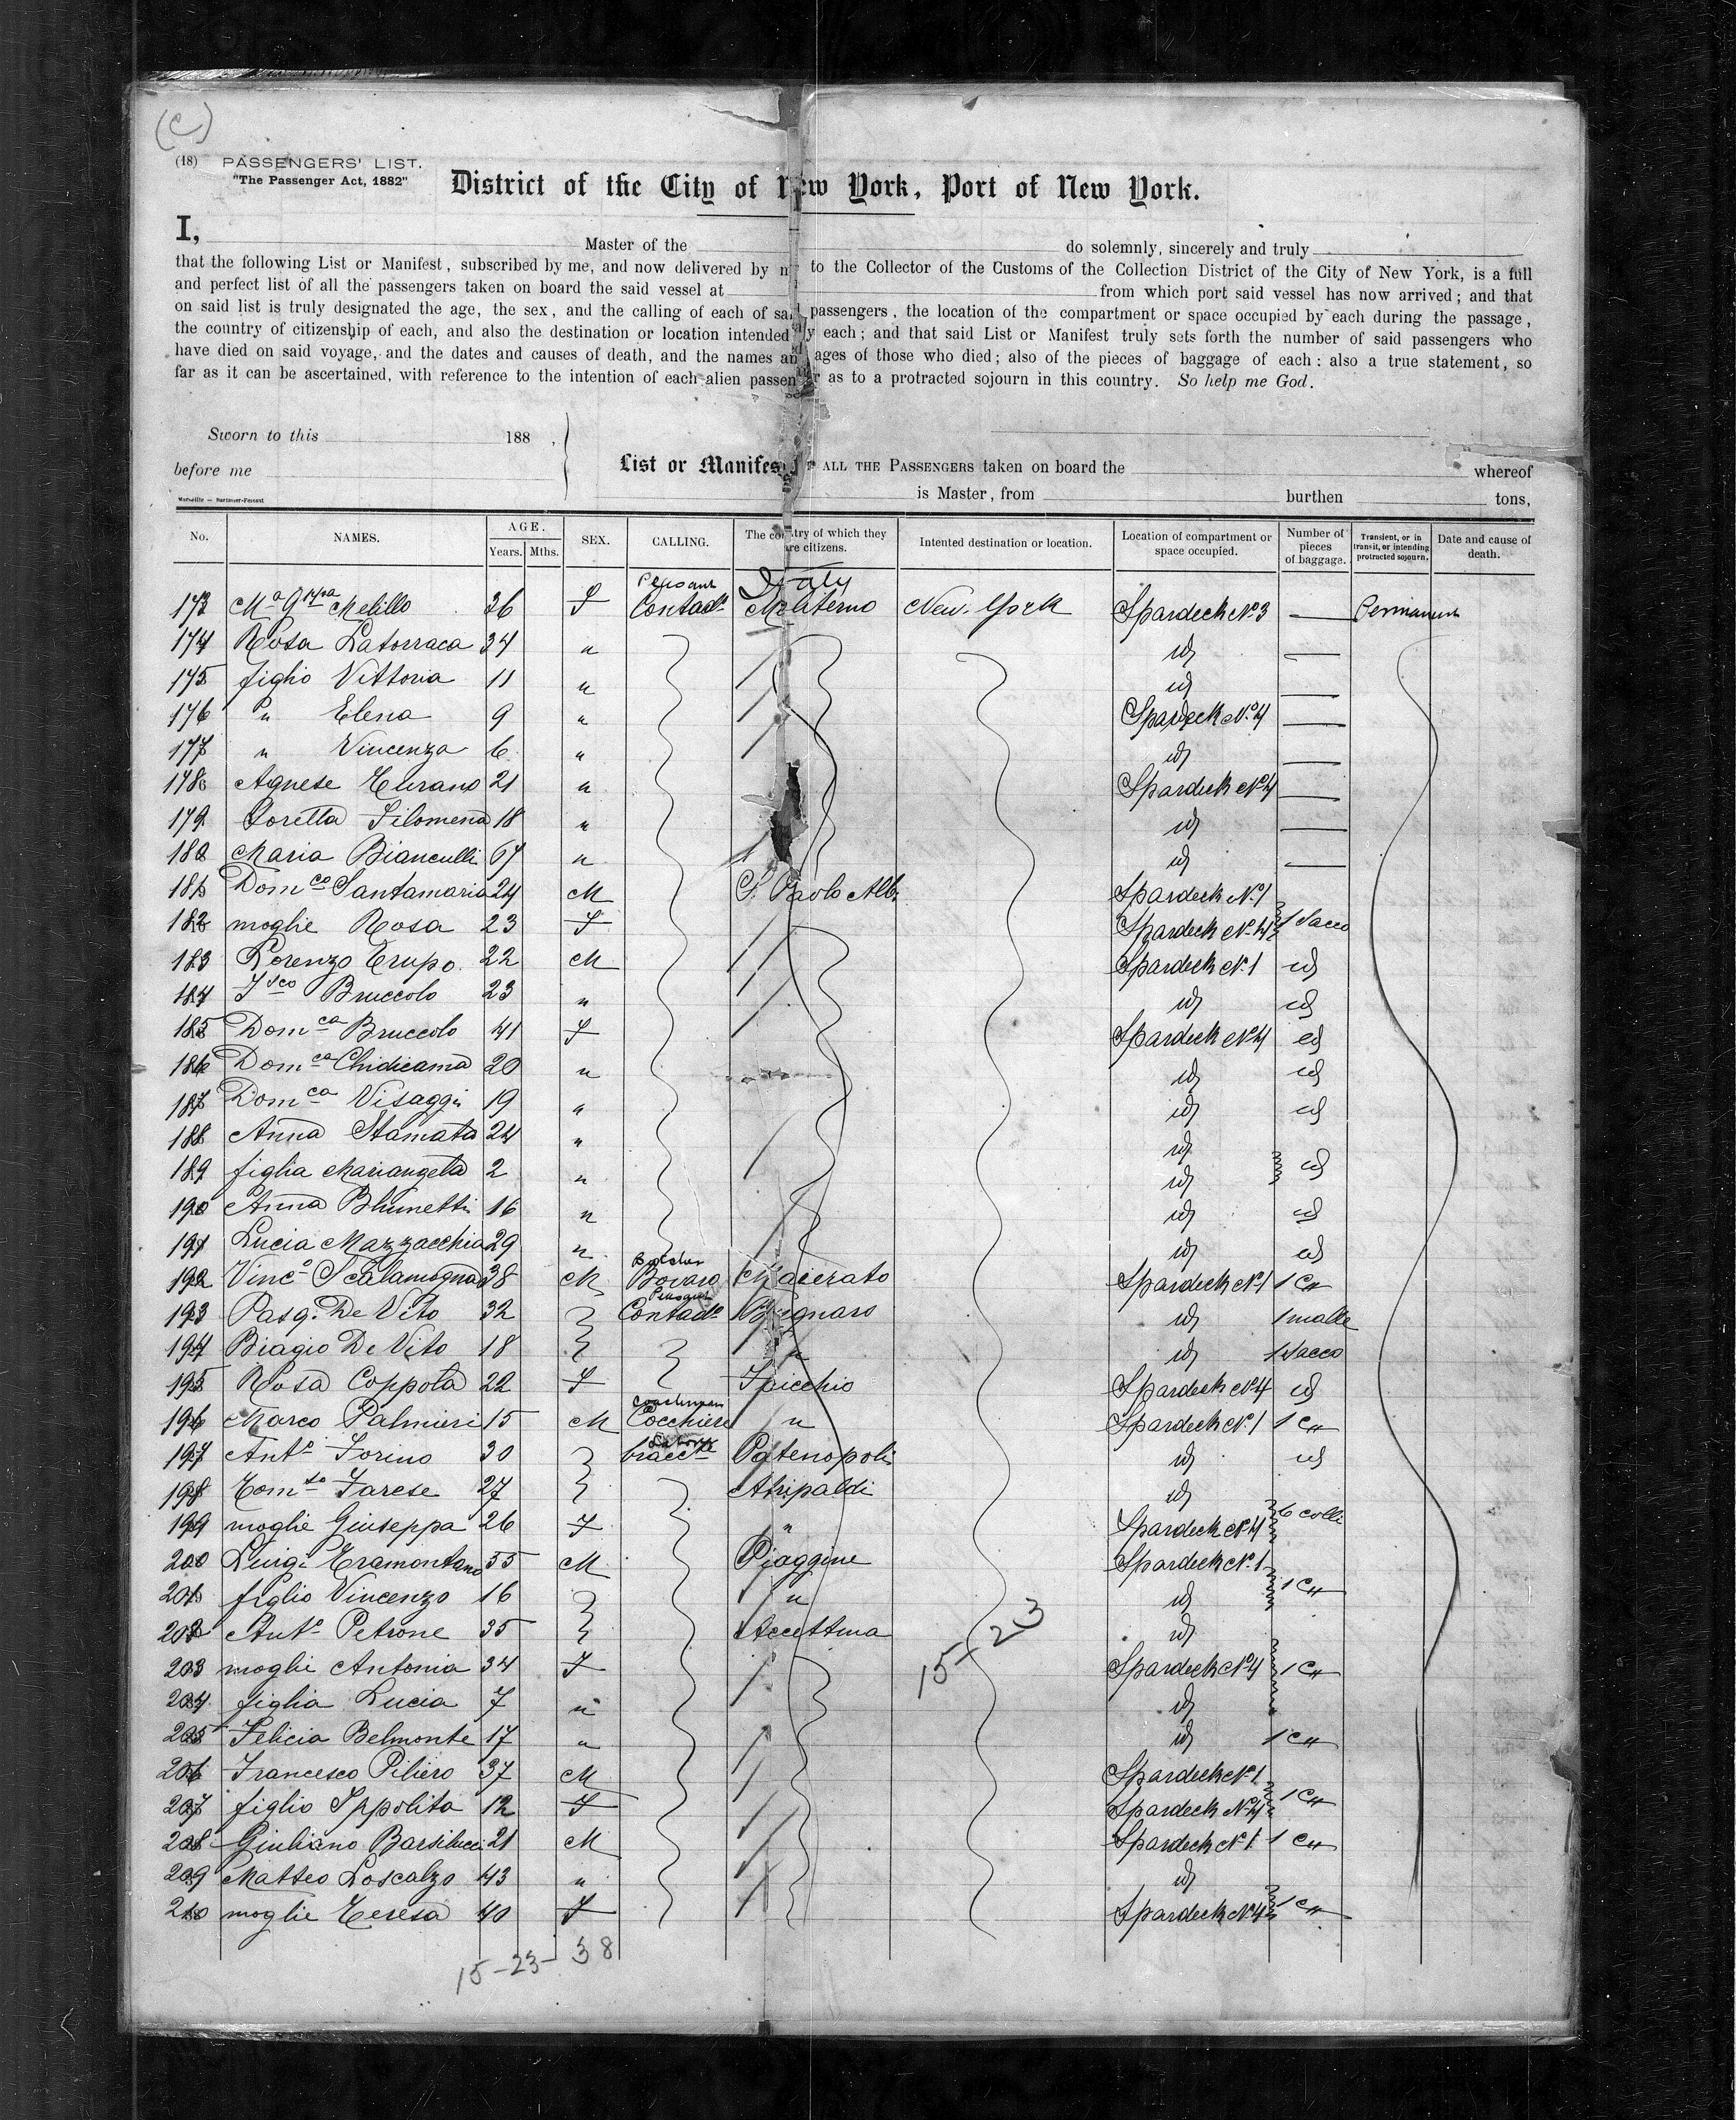 (C)
(18) PASSENGERS' LIST.
"The Passenger Act, 1882"
District of the City of New York, Port of New York.
I, Master of the do solemnly, sincerely and truly
that the following List or Manifest, subscribed by me, and now delivered by m to the Collector of the Customs of the Collection District of the City of New York, is a full
and perfect list of all the passengers taken on board the said vessel at from which port said vessel has now arrived; and that
on said list is truly designated the age, the sex, and the calling of each of said passengers, the location of the compartment or space occupied by each during the passage,
the country of citizenship of each, and also the destination or location intended by each; and that said List or Manifest truly sets forth the number of said passengers who
have died on said voyage, and the dates and causes of death, and the names and ages of those who died; also of the pieces of baggage of each: also a true statement, so
far as it can be ascertained, with reference to the intention of each alien passenger as to a protracted sojourn in this country. So help me God.
Sworn to this 188 ,
before me
List or Manifest OF ALL THE PASSENGERS taken on board the whereof
is Master, from burthen tons,
No. NAMES. AGE. Years. Mths. SEX. CALLING. The country of which they are citizens. Intended destination or location. Location of compartment or space occupied. Number of pieces of baggage. Transient, or in transit, or intending protracted sojourn. Date and cause of death.
Peasant Italy
173 Ma Melillo 36 F Contad. Moliterno New. York Spardeck No 3 — Permanent
174 Rosa Latorraca 34 " id —
175 figlio Vittoria 11 " id —
176 " Elena 9 " Spardeck No 4 —
177 " Vincenza 6 " id —
178 Agnese Turano 21 " Spardeck No 4 —
179 Loretta Filomena 18 " id —
180 Maria Bianculli 67 " id —
181 Domco Santamaria 24 M S. Paolo Alb. Spardeck No 1
182 moglie Rosa 23 F Spardeck No 4 1 Sacco
183 Lorenzo Trupo 22 M Spardeck No 1 id
184 Fsco Bruccolo 23 " id id
185 Domca Bruccolo 41 F Spardeck No 4 id
186 Domca Chidicama 20 " id id
187 Domca Visaggi 19 " id id
188 Anna Stamata 24 " id
189 figlia Mariangela 2 " id id
190 Anna Bhunetti 16 " id id
191 Lucia Mazzacchia 29 " id id
192 Vinco Scalamogna 38 M Bovaro Macerato Spardeck No 1 1 C"
Peasant
193 Pasq. De Vito 32 Contad. id 1 malle
194 Biagio De Vito 18 " id 1 Sacco
195 Rosa Coppola 22 F Spardeck No 4 id
Coachman
196 Marco Palmieri 15 M Cocchiere " Spardeck No 1 1 C"
Laborer
197 Anto Forino 30 bracc. Patenopoli id id
198 Tomso Farese 27 Atripaldi id
199 moglie Giuseppa 26 F " Spardeck No 4 6 colli
200 Luigi Tramontano 55 M Piaggine Spardeck No 1
201 figlio Vincenzo 16 " id 1 C"
202 Anto Petrone 35 Accettura id
203 moglie Antonia 34 F Spardeck No 4 1 C"
204 figlia Lucia 7 " id
205 Felicia Belmonte 17 " id 1 C"
206 Francesco Piliero 37 M Spardeck No 1
207 figlio Ippolita 12 F Spardeck No 4 1 C"
208 Giuliano Barsilucci 21 M Spardeck No 1 1 C"
209 Matteo Loscalzo 43 " id
210 moglie Teresa 40 F Spardeck No 4 1 C"
15-23
15-23- 38